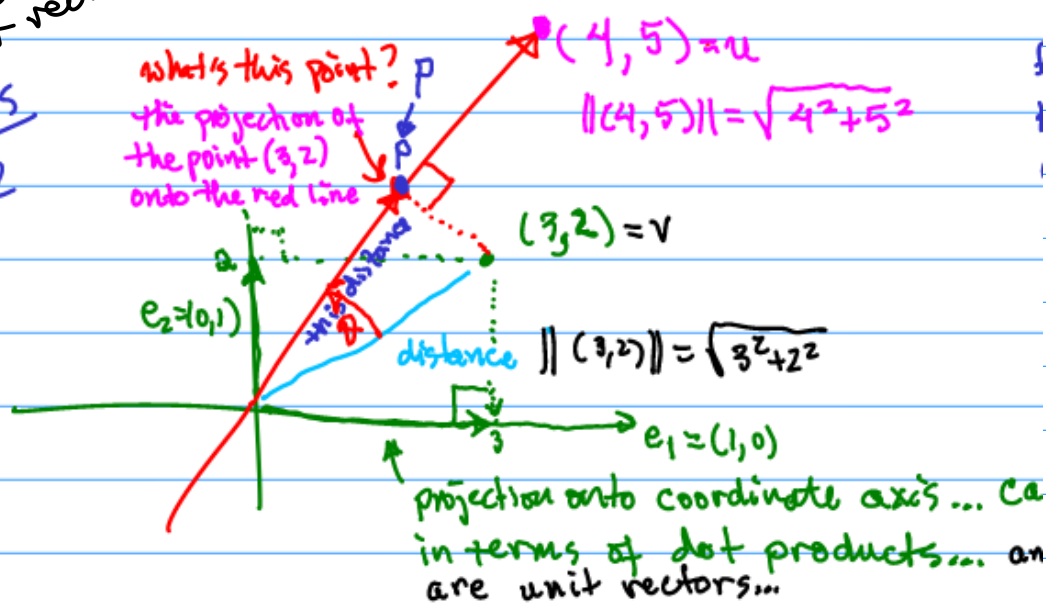 (4,5)=u
what's this point? p
||(4,5)|| = √4²+5²
the projection of
the point (3,2)
p
onto the red line
(3,2) = v
2
this distance
e₂=(0,1)
θ
distance
|| (3,2)|| = √3²+2²
3
e₁ = (1,0)
projection onto coordinate axis... ca
in terms of dot products... an
are unit vectors...